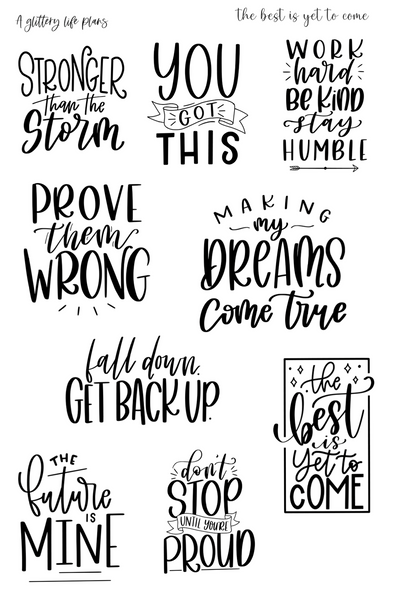 A glittery life plans
the best is yet to come
STRONGER
than the
Storm
YOU
GOT
THIS
WORK
hard
BE KIND
stay
HUMBLE
PROVE
them
WRONG
MAKING
my
DREAMS
come true
fall down.
GET BACK UP.
the
best
is
yet to
COME
THE
future
IS
MINE
don't
STOP
UNTIL YOU'RE
PROUD